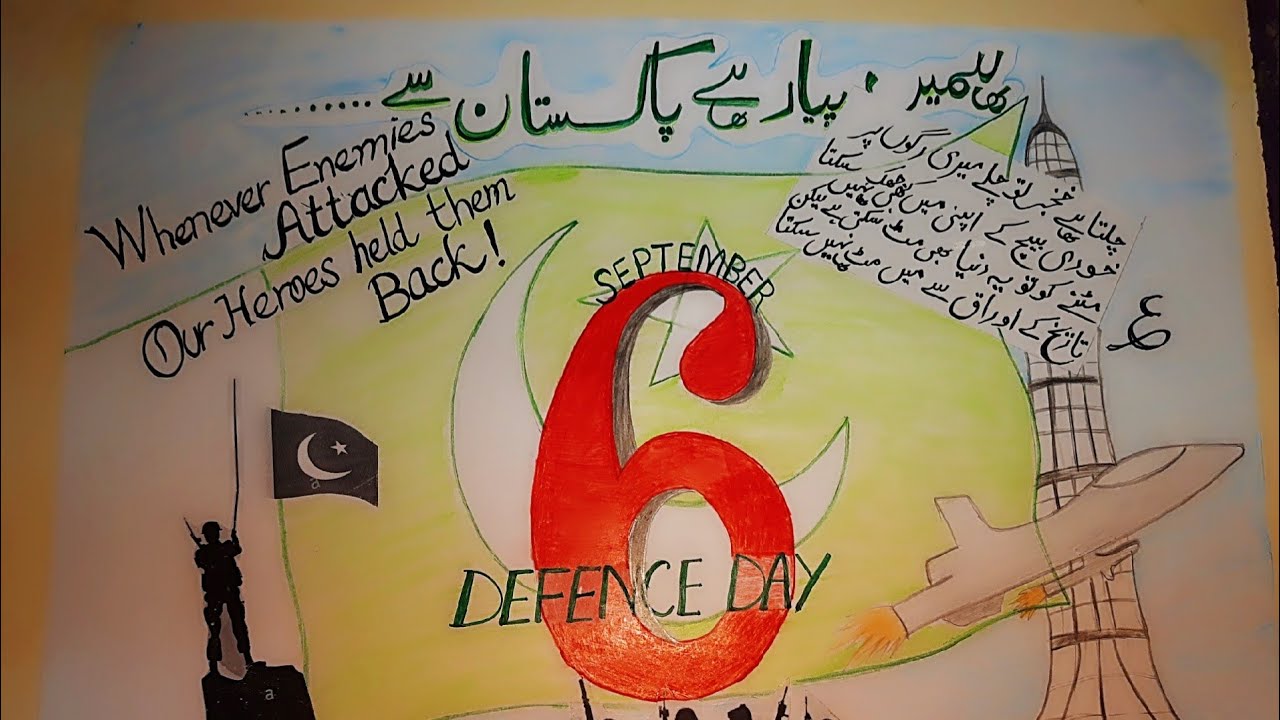 ہمیں پیار ہے پاکستان سے ........
Whenever Enemies
Attacked
Our Heroes held them
Back!
چلتا ہے خنجر تو چلے میری رگوں پر
خودی بیچ کے اپنی میں کبھی جھک نہیں سکتا
مٹنے کو تو یہ دنیا بھی مٹ سکتی ہے لیکن
تاریخ کے اوراق سے میں مٹ نہیں سکتا
SEPTEMBER
6
DEFENCE DAY
a
a